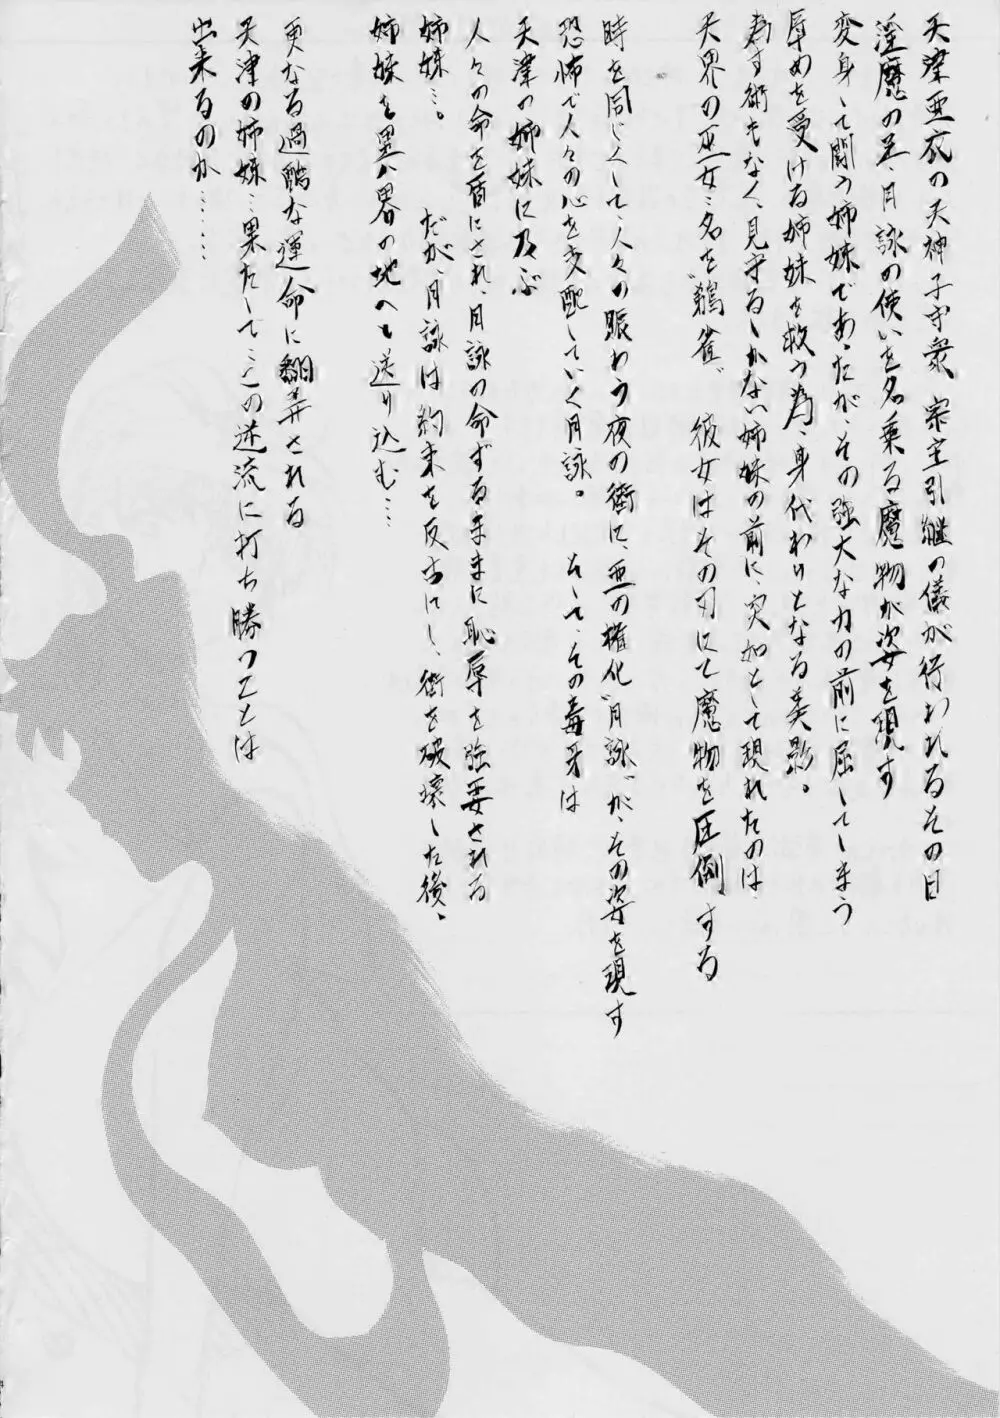 天津亜衣の天神子守衆 宗主引継の儀が行われるその日
淫魔の王、月詠の使いを名乗る魔物が姿を現す
変身して闘う姉妹であったが、その強大な力の前に屈してしまう
辱めを受ける姉妹を救う為、身代わりとなる美影。
為す術もなく、見守るしかない姉妹の前に、突如として現れたのは
天界の巫女…名を〝鵺雀〟 彼女はその刃にて魔物を圧倒する
時を同じくして、人々の賑わう夜の街に、悪の権化〝月詠〟が、その姿を現す
恐怖で人々の心を支配していく月詠。 そして、その毒牙は
天津の姉妹に及ぶ
人々の命を盾にされ、月詠の命ずるままに恥辱を強要される
姉妹…。 だが、月詠は約束を反古にし、街を破壊した後、
姉妹を異八界の地へと送り込む…
更なる過酷な運命に翻弄される
天津の姉妹…果たして…この逆流に打ち勝つことは
出来るのか……